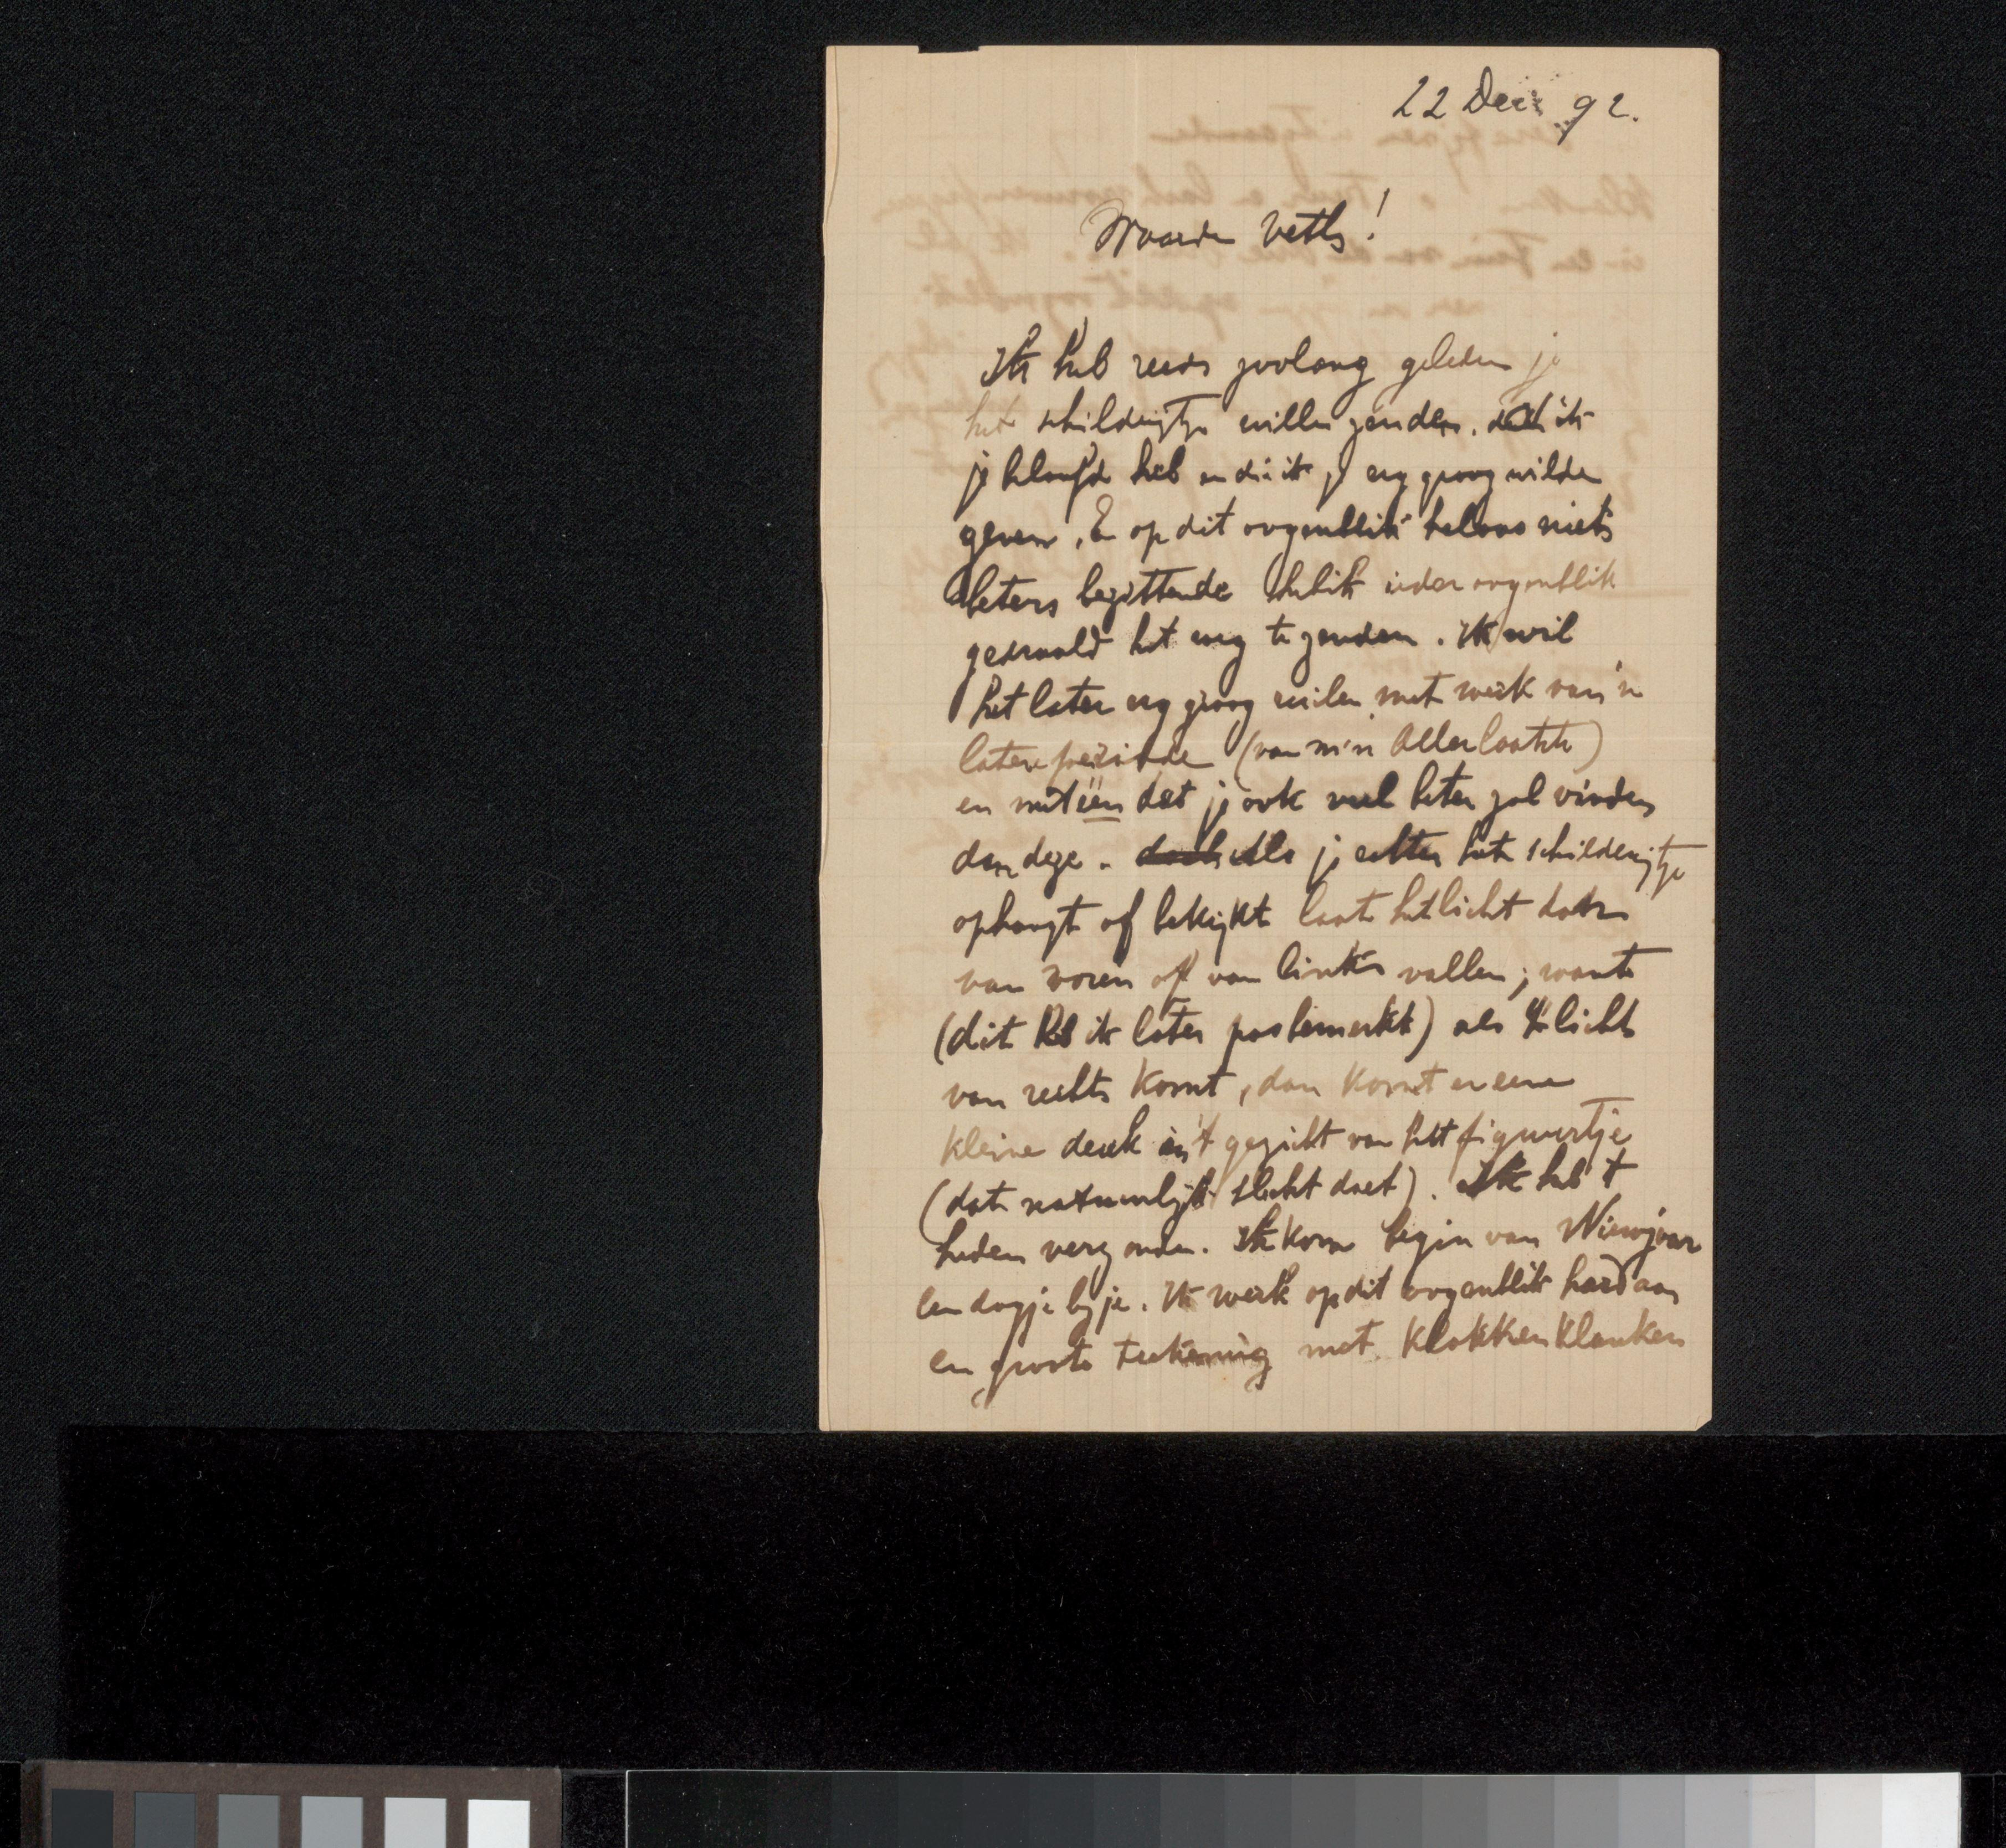 22 Dec 92.
Waarde Veth!
Ik heb reeds zoolang geleden je
het schilderijtje willen zenden. dat ik
je beloofde heb en die ik je erg graag wilde
geven. En op dit oogenblik helaas niets
beters bezittende heb ik ieder oogenblik
gedraald het weg te zenden. Ik wil
het later erg graag ruilen met werk van 'n
latere periode (van m'n allerlaatste)
en met één dat je ook veel beter zal vinden
dan deze. doch Als je echter het schilderijtje
ophangt of bekijkt laat het licht dan
van voren of van links vallen; want
(dit heb ik later pas bemerkt) als 't licht
van rechts komt, dan komt er eene
kleine deuk in 't gezicht van het figuurtje
(dat natuurlijk slecht doet). Ik heb 't
heden verzonden. Ik kom begin van Nieuwjaar
een dagje bij je. Ik werk op dit oogenblik hard aan
en groote teekening met klokken klanken